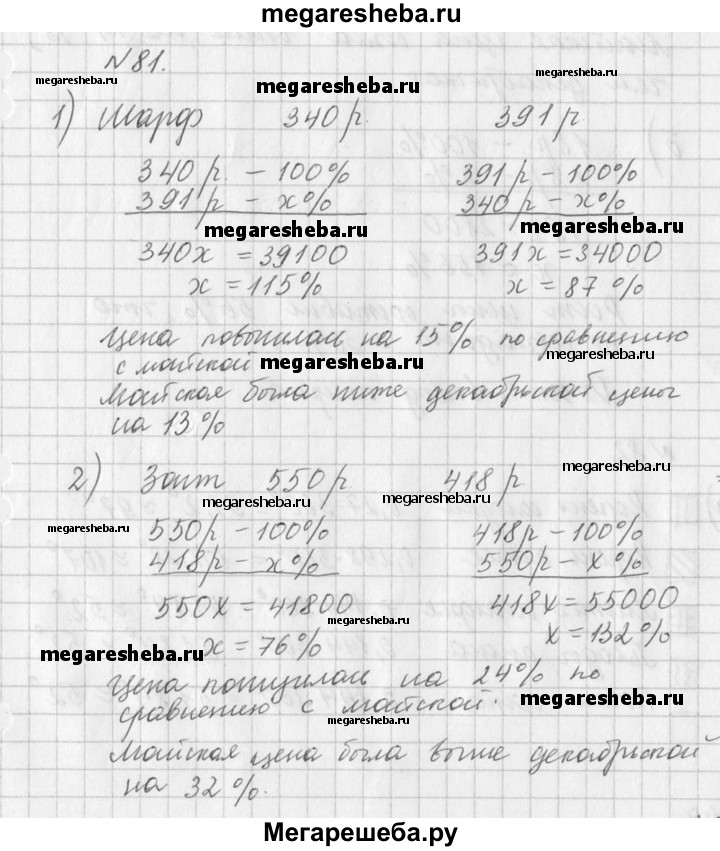 megaresheba.ru
№81.
megaresheba.ru megaresheba.ru megaresheba.ru
1) Шарф 340 р. 391 р
340 р. – 100% 391 р – 100%
391 р – x% 340 р – x%
megaresheba.ru megaresheba.ru
340x = 39100 391x = 34000
x = 115% x = 87 %
Цена повысилась на 15% по сравнению
megaresheba.ru
с майской
megaresheba.ru
Майская была ниже декабрьской цены
на 13 %
megaresheba.ru
2) Зонт 550 р 418 р
megaresheba.ru megaresheba.ru
megaresheba.ru
550 р – 100% 418 р – 100%
418 р – x% 550 р – x%
550x = 41800 418x = 55000
megaresheba.ru
x = 76 % x = 132 %
megaresheba.ru
Цена понизилась на 24% по
megaresheba.ru
сравнению с майской.
megaresheba.ru
Майская цена была выше декабрьской
на 32 %.
megaresheba.ru
Мегарешеба.ру